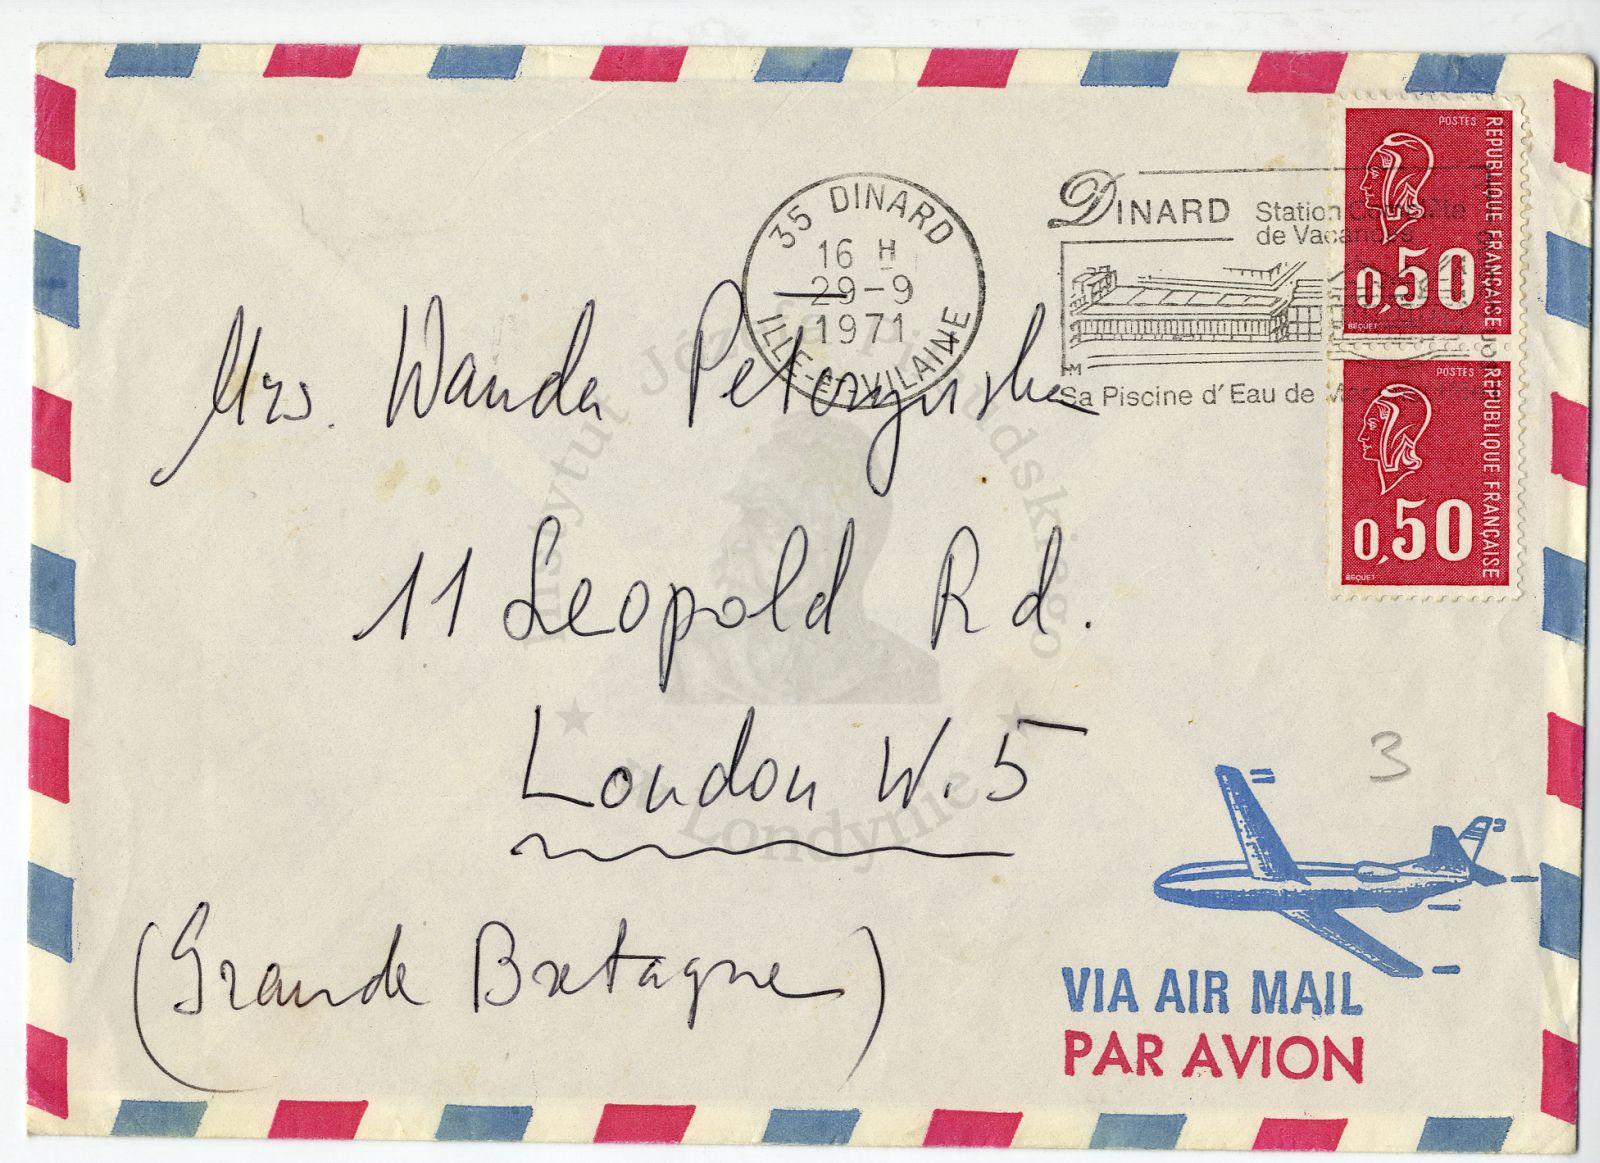 35 DINARD
16 H
29-9
1971
ILLE-ET-VILAINE
DINARD Station Complète
de Vacances
Sa Piscine d'Eau de
POSTES
REPUBLIQUE FRANÇAISE
0,50
BEQUET
POSTES
REPUBLIQUE FRANÇAISE
0,50
BEQUET
Mrs. Wanda Petczynska
11 Leopold Rd.
London W.5
(Grande Bretagne)
3
VIA AIR MAIL
PAR AVION
Instytut Józefa Piłsudskiego
w Londynie